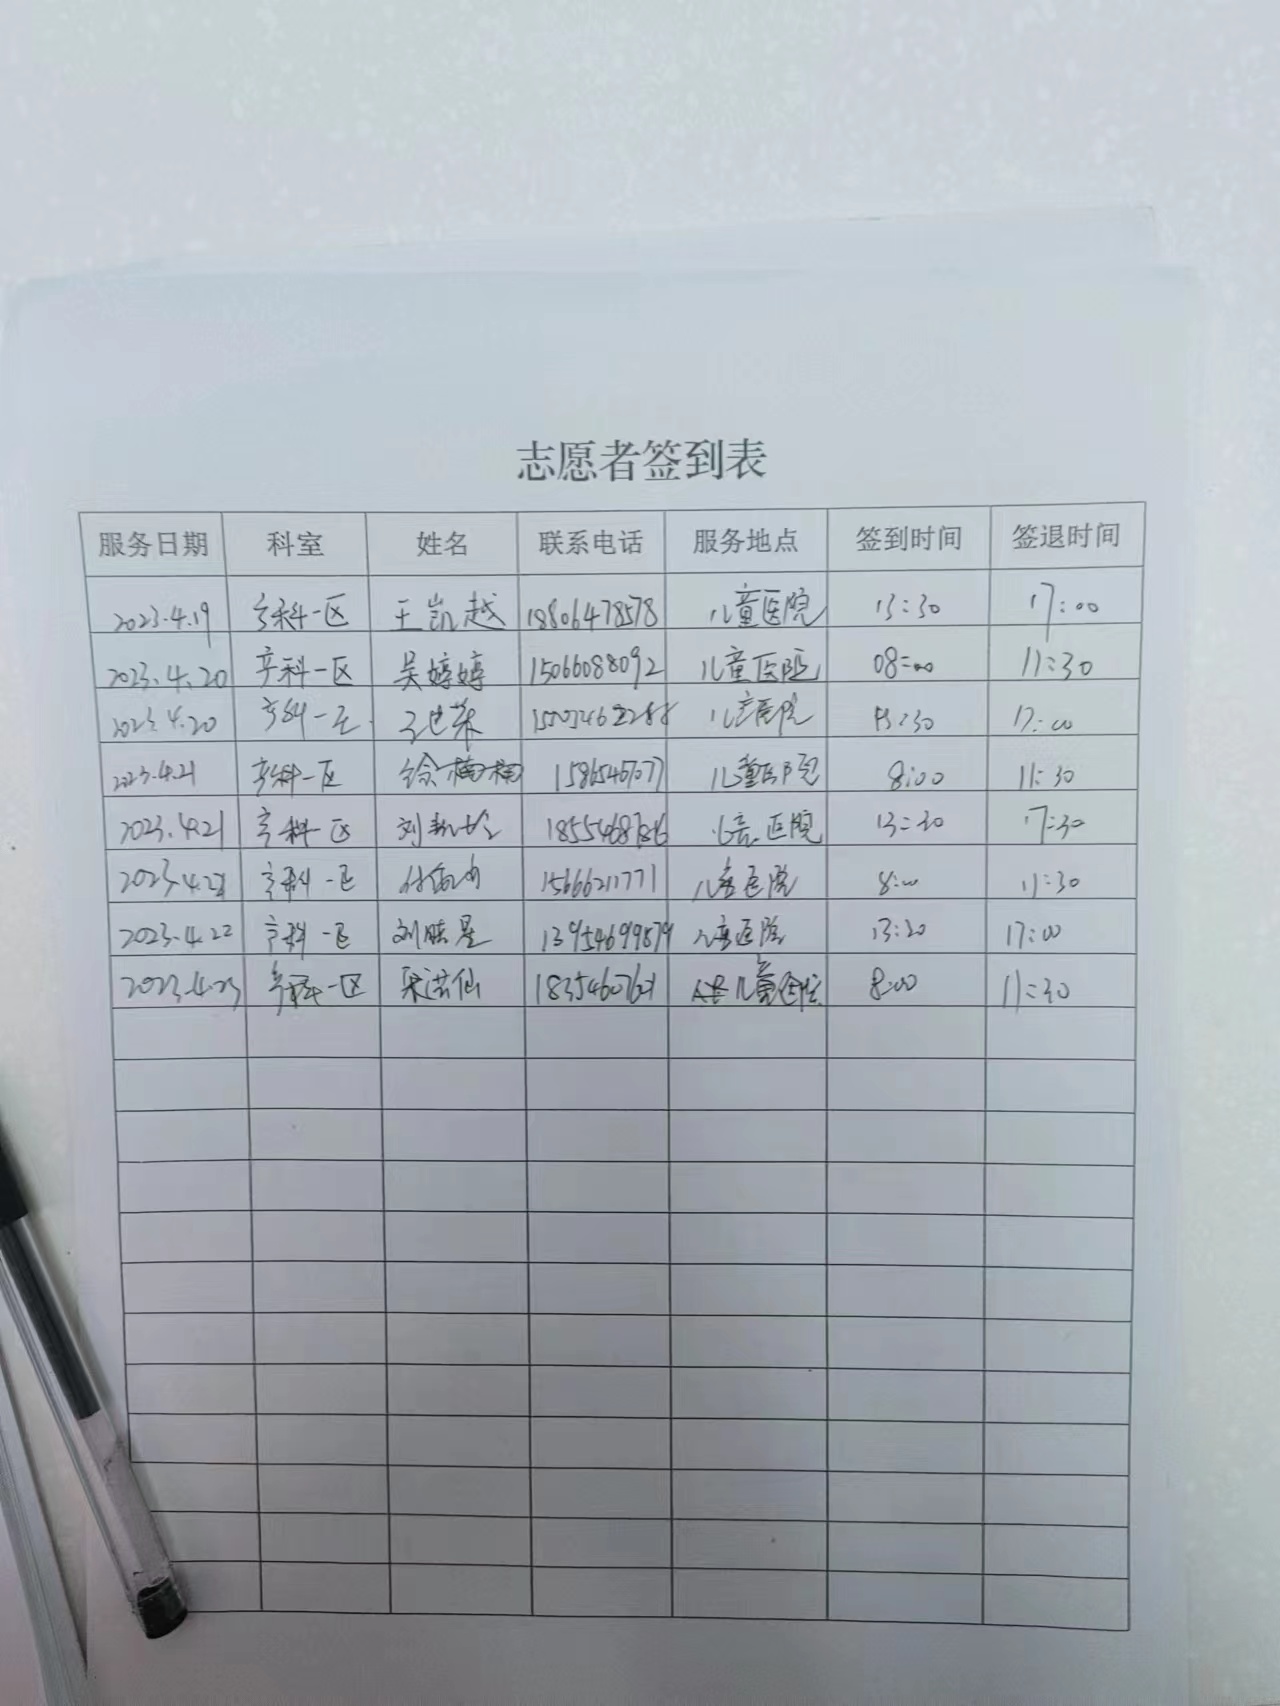 志愿者签到表
服务日期 科室 姓名 联系电话 服务地点 签到时间 签退时间
2023.4.19 产科一区 王凯越 18806478578 儿童医院 13:30 17:00
2023.4.20 产科一区 吴婷婷 15066088092 儿童医院 08:00 11:30
2023.4.20 产科一区 儿童医院 13:30 17:00
2023.4.21 产科一区 徐楠楠 15865467077 儿童医院 8:00 11:30
2023.4.21 产科一区 刘 儿童医院 13:30 17:30
2023.4.22 产科一区 15666211771 儿童医院 8:00 11:30
2023.4.22 产科一区 刘晓星 13954699879 儿童医院 13:30 17:00
2023.4.23 产科一区 宋洪仙 18354607621 儿童医院 8:00 11:30